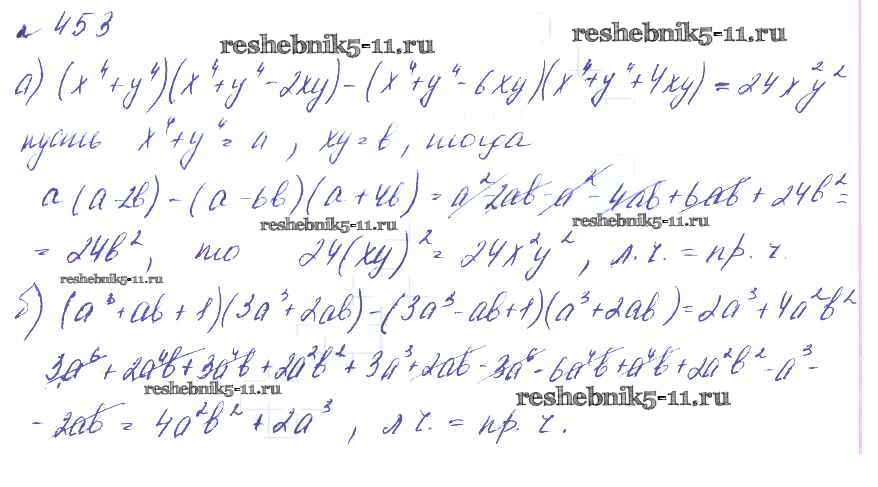 № 453
reshebnik5-11.ru reshebnik5-11.ru
а) (x⁴+y⁴)(x⁴+y⁴-2xy)-(x⁴+y⁴-6xy)(x⁴+y⁴+4xy)=24x²y²
пусть x⁴+y⁴=a, xy=b, тогда
a(a-2b)-(a-6b)(a+4b)=a²-2ab-a²-4ab+6ab+24b²=
reshebnik5-11.ru reshebnik5-11.ru
=24b², то 24(xy)²=24x²y², л.ч.=пр.ч.
reshebnik5-11.ru
б) (a³+ab+1)(3a³+2ab)-(3a³-ab+1)(a³+2ab)=2a³+4a²b²
3a⁶+2a⁴b+3a⁴b+2a²b²+3a³+2ab-3a⁶-6a⁴b+a⁴b+2a²b²-a³-
reshebnik5-11.ru reshebnik5-11.ru
-2ab=4a²b²+2a³, л.ч.=пр.ч.